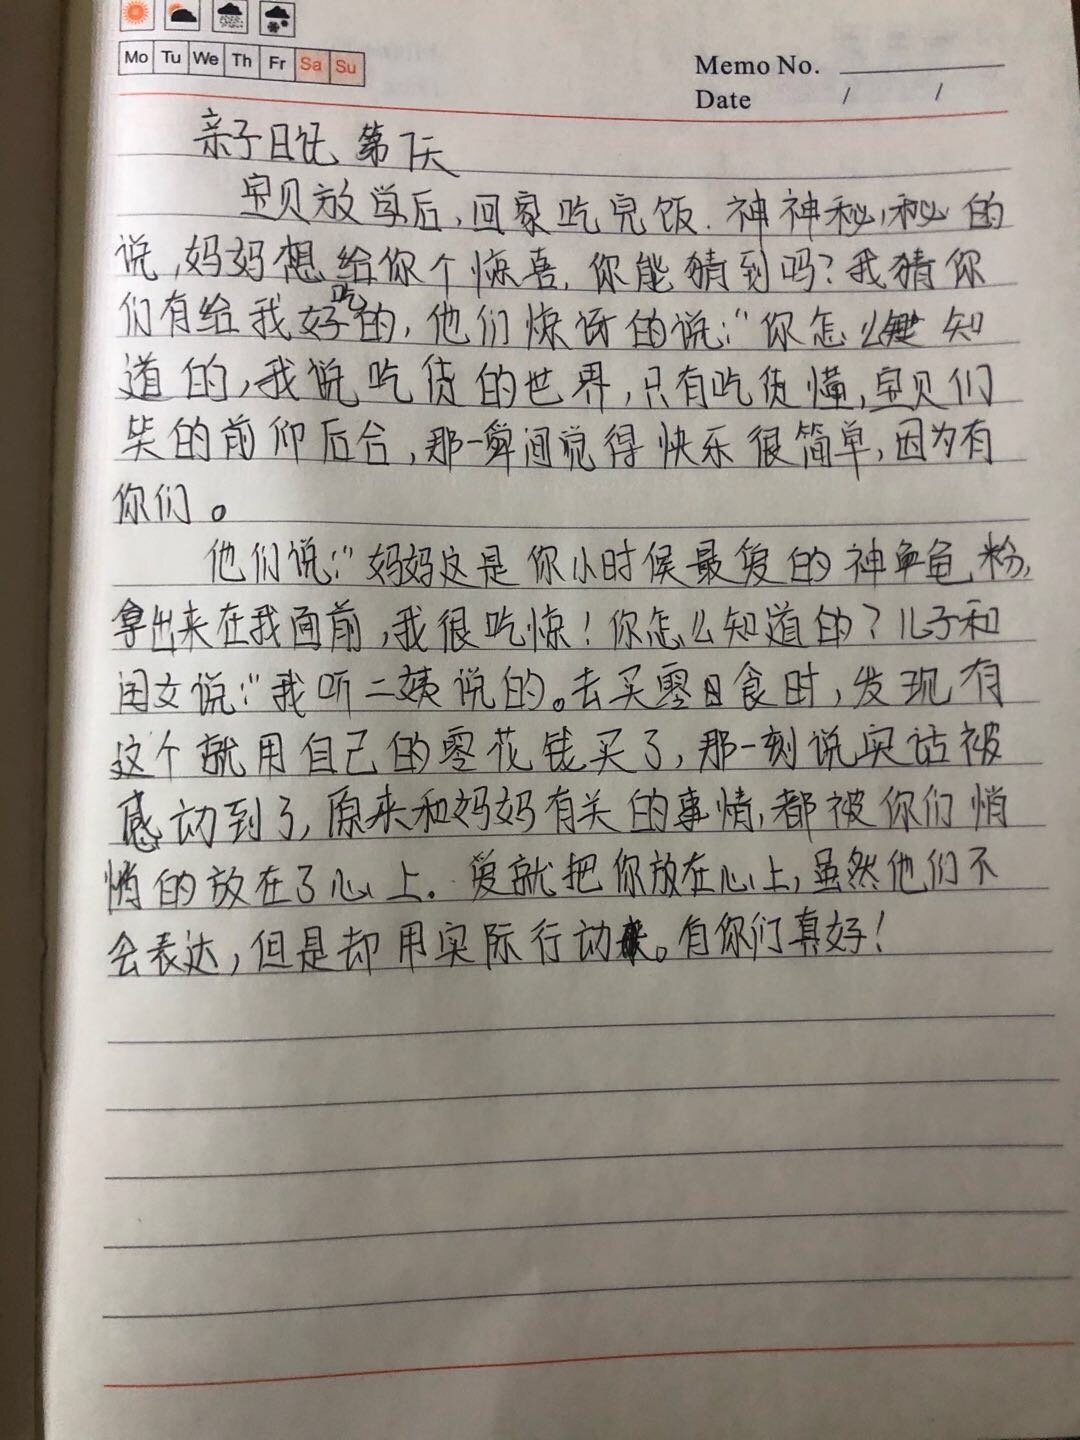 Mo Tu We Th Fr Sa Su
Memo No.
Date / /
亲子日记 第7天
宝贝放学后,回家吃完饭.神神秘秘的
说,妈妈想给你个惊喜,你能猜到吗?我猜你
们有给我好吃的,他们惊讶的说:"你怎么知
道的,我说吃货的世界,只有吃货懂,宝贝们
笑的前仰后合,那一瞬间觉得快乐很简单,因为有
你们。
他们说:"妈妈这是你小时候最爱的神龟粉,
拿出来在我面前,我很吃惊!你怎么知道的?儿子和
闺女说:"我听二姨说的。去买零食时,发现有
这个就用自己的零花钱买了,那一刻说实话被
感动到了,原来和妈妈有关的事情,都被你们悄
悄的放在了心上.爱就把你放在心上,虽然他们不
会表达,但是却用实际行动。有你们真好!